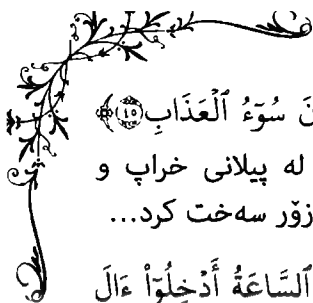 نَ سُوٓءُ ٱلْعَذَابِ ﴿٤٥﴾
لە پیلانی خراپ و
زۆر سەخت کرد...
ٱلسَّاعَةُ أَدْخِلُوٓا۟ ءَالَ